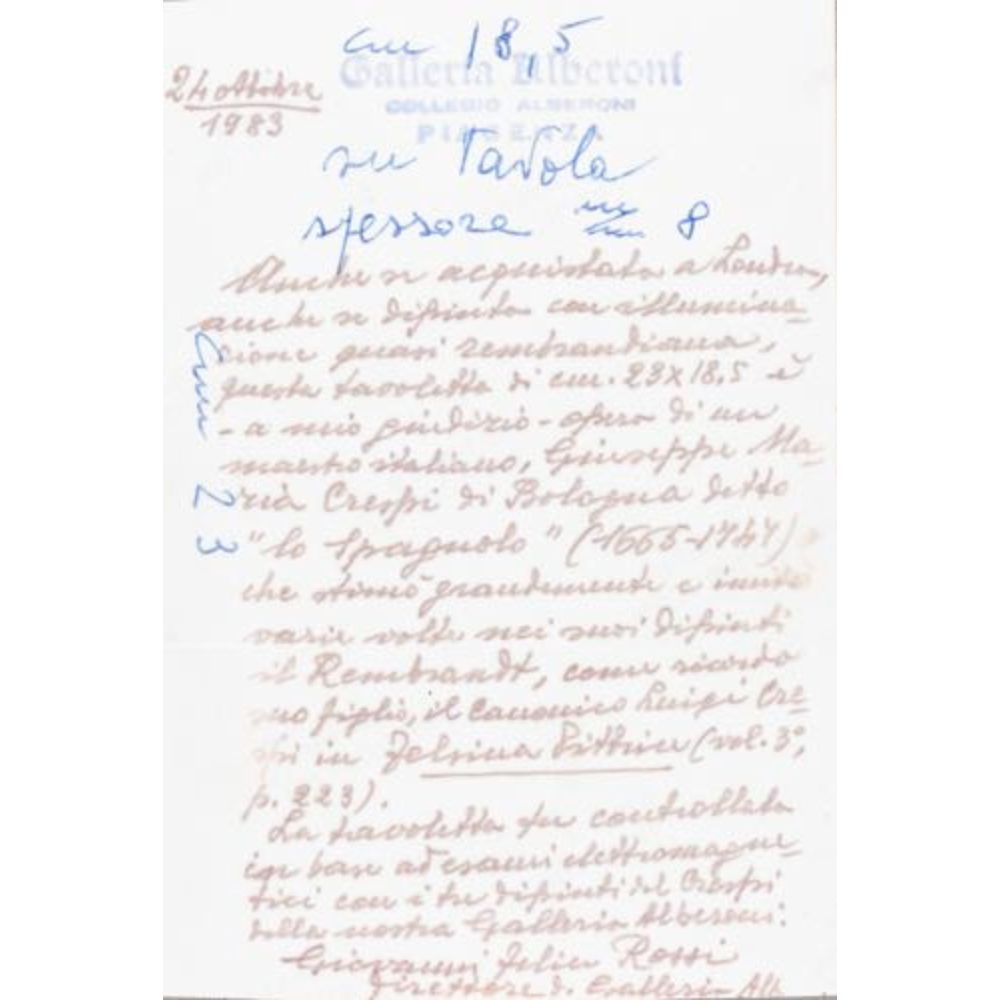 cm 18,5
Galleria Alberoni
COLLEGIO ALBERONI
PIACENZA
24 ottobre
1983
su Tavola
spessore mm 8
Anche se acquistata a Londra,
anche se dipinta con illumina-
zione quasi rembrandiana,
questa tavoletta di cm. 23x18,5 è
- a mio giudizio - opera di un
maestro italiano, Giuseppe Ma-
ria Crespi di Bologna detto
"lo Spagnolo" (1665-1747)
che stimò grandemente e imitò
varie volte nei suoi dipinti
il Rembrandt, come ricorda
suo figlio, il canonico Luigi Cre-
spi in Felsina Pittrice (vol. 3°,
p. 223).
La tavoletta fu controllata
in base ad esami elettromagne-
tici con i tre dipinti del Crespi
della nostra Galleria Alberoni.
Giovanni Felice Rossi
Direttore d. Galleria Alb
cm 23